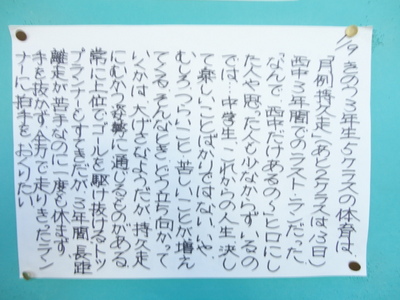 1/9 きのう3年生5クラスの体育は、
月例持久走(あと2クラスは13日)
西中3年間でのラストランだった
「なんで、西中だけあるの?」とロにし
た人や思った人も少なからずいるの
では…中学生、これからの人生決し
て楽しいことばかりではない、いや、
むしろつらいこと、苦しいことが増え
てくる。そんなときどう立ち向かって
いくかは、大げさなようだが持久走
にむかう姿勢に通じるものがある
常に上位でゴールを駆け抜けるトッ
プランナーもすてきだが、3年間、長距
離走が苦手なのに一度も休まず、
手を抜かず、全力で走りきったラン
ナーに拍手をおくりたい